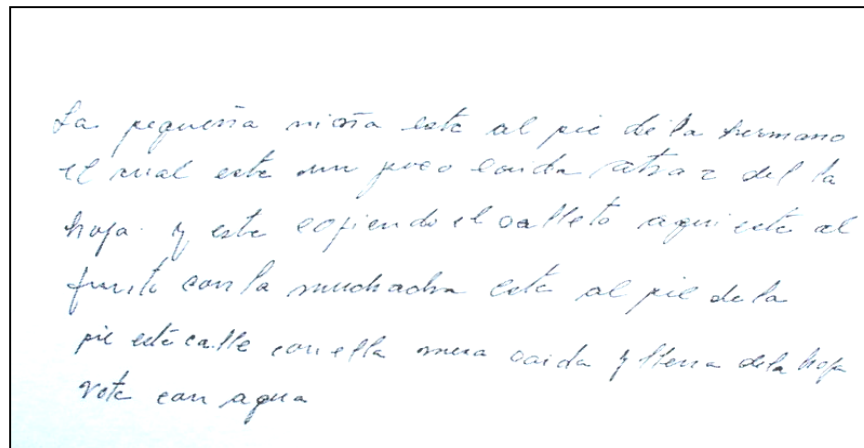 La pequeña niña este al pie de la hermano
el cual este un poco caida atraz del la
hoja y este cogiendo el galleto aqui este al
junto con la muchacha este al pie de la
pie este calle con ella mesa caida y llena dela hoja
vote con agua